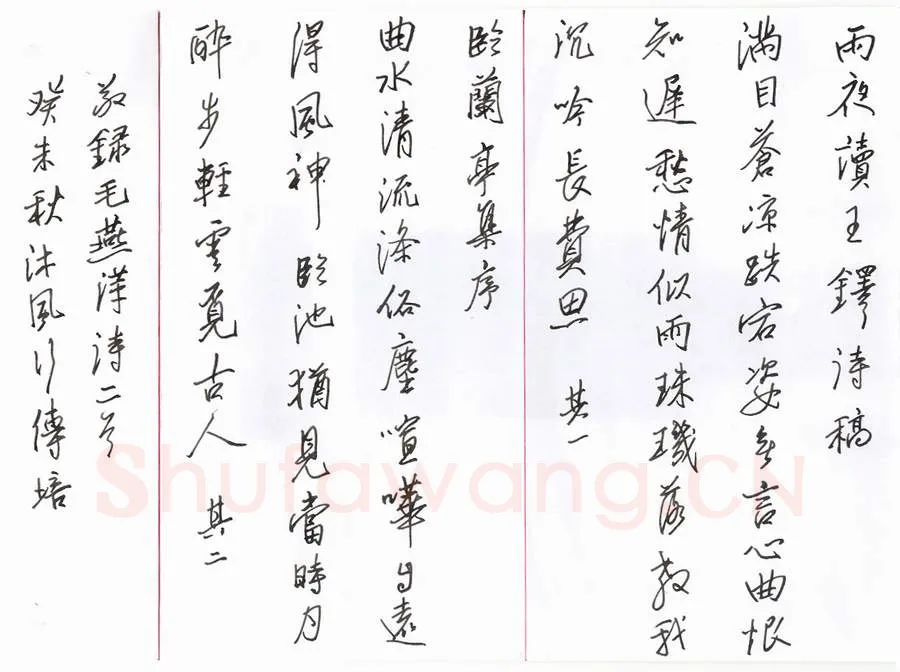 雨夜讀王鐸詩稿
滿目蒼凉跌宕姿無言心曲恨
知遲愁情似雨珠璣落教我
沉吟長費思 其一
臨蘭亭集序
曲水清流滌俗塵喧嘩自遠
得風神臨池猶見當時月
醉步輕雲覓古人 其二
敬録毛燕詩二首
癸未秋沐風傳培
Shufawang.CN